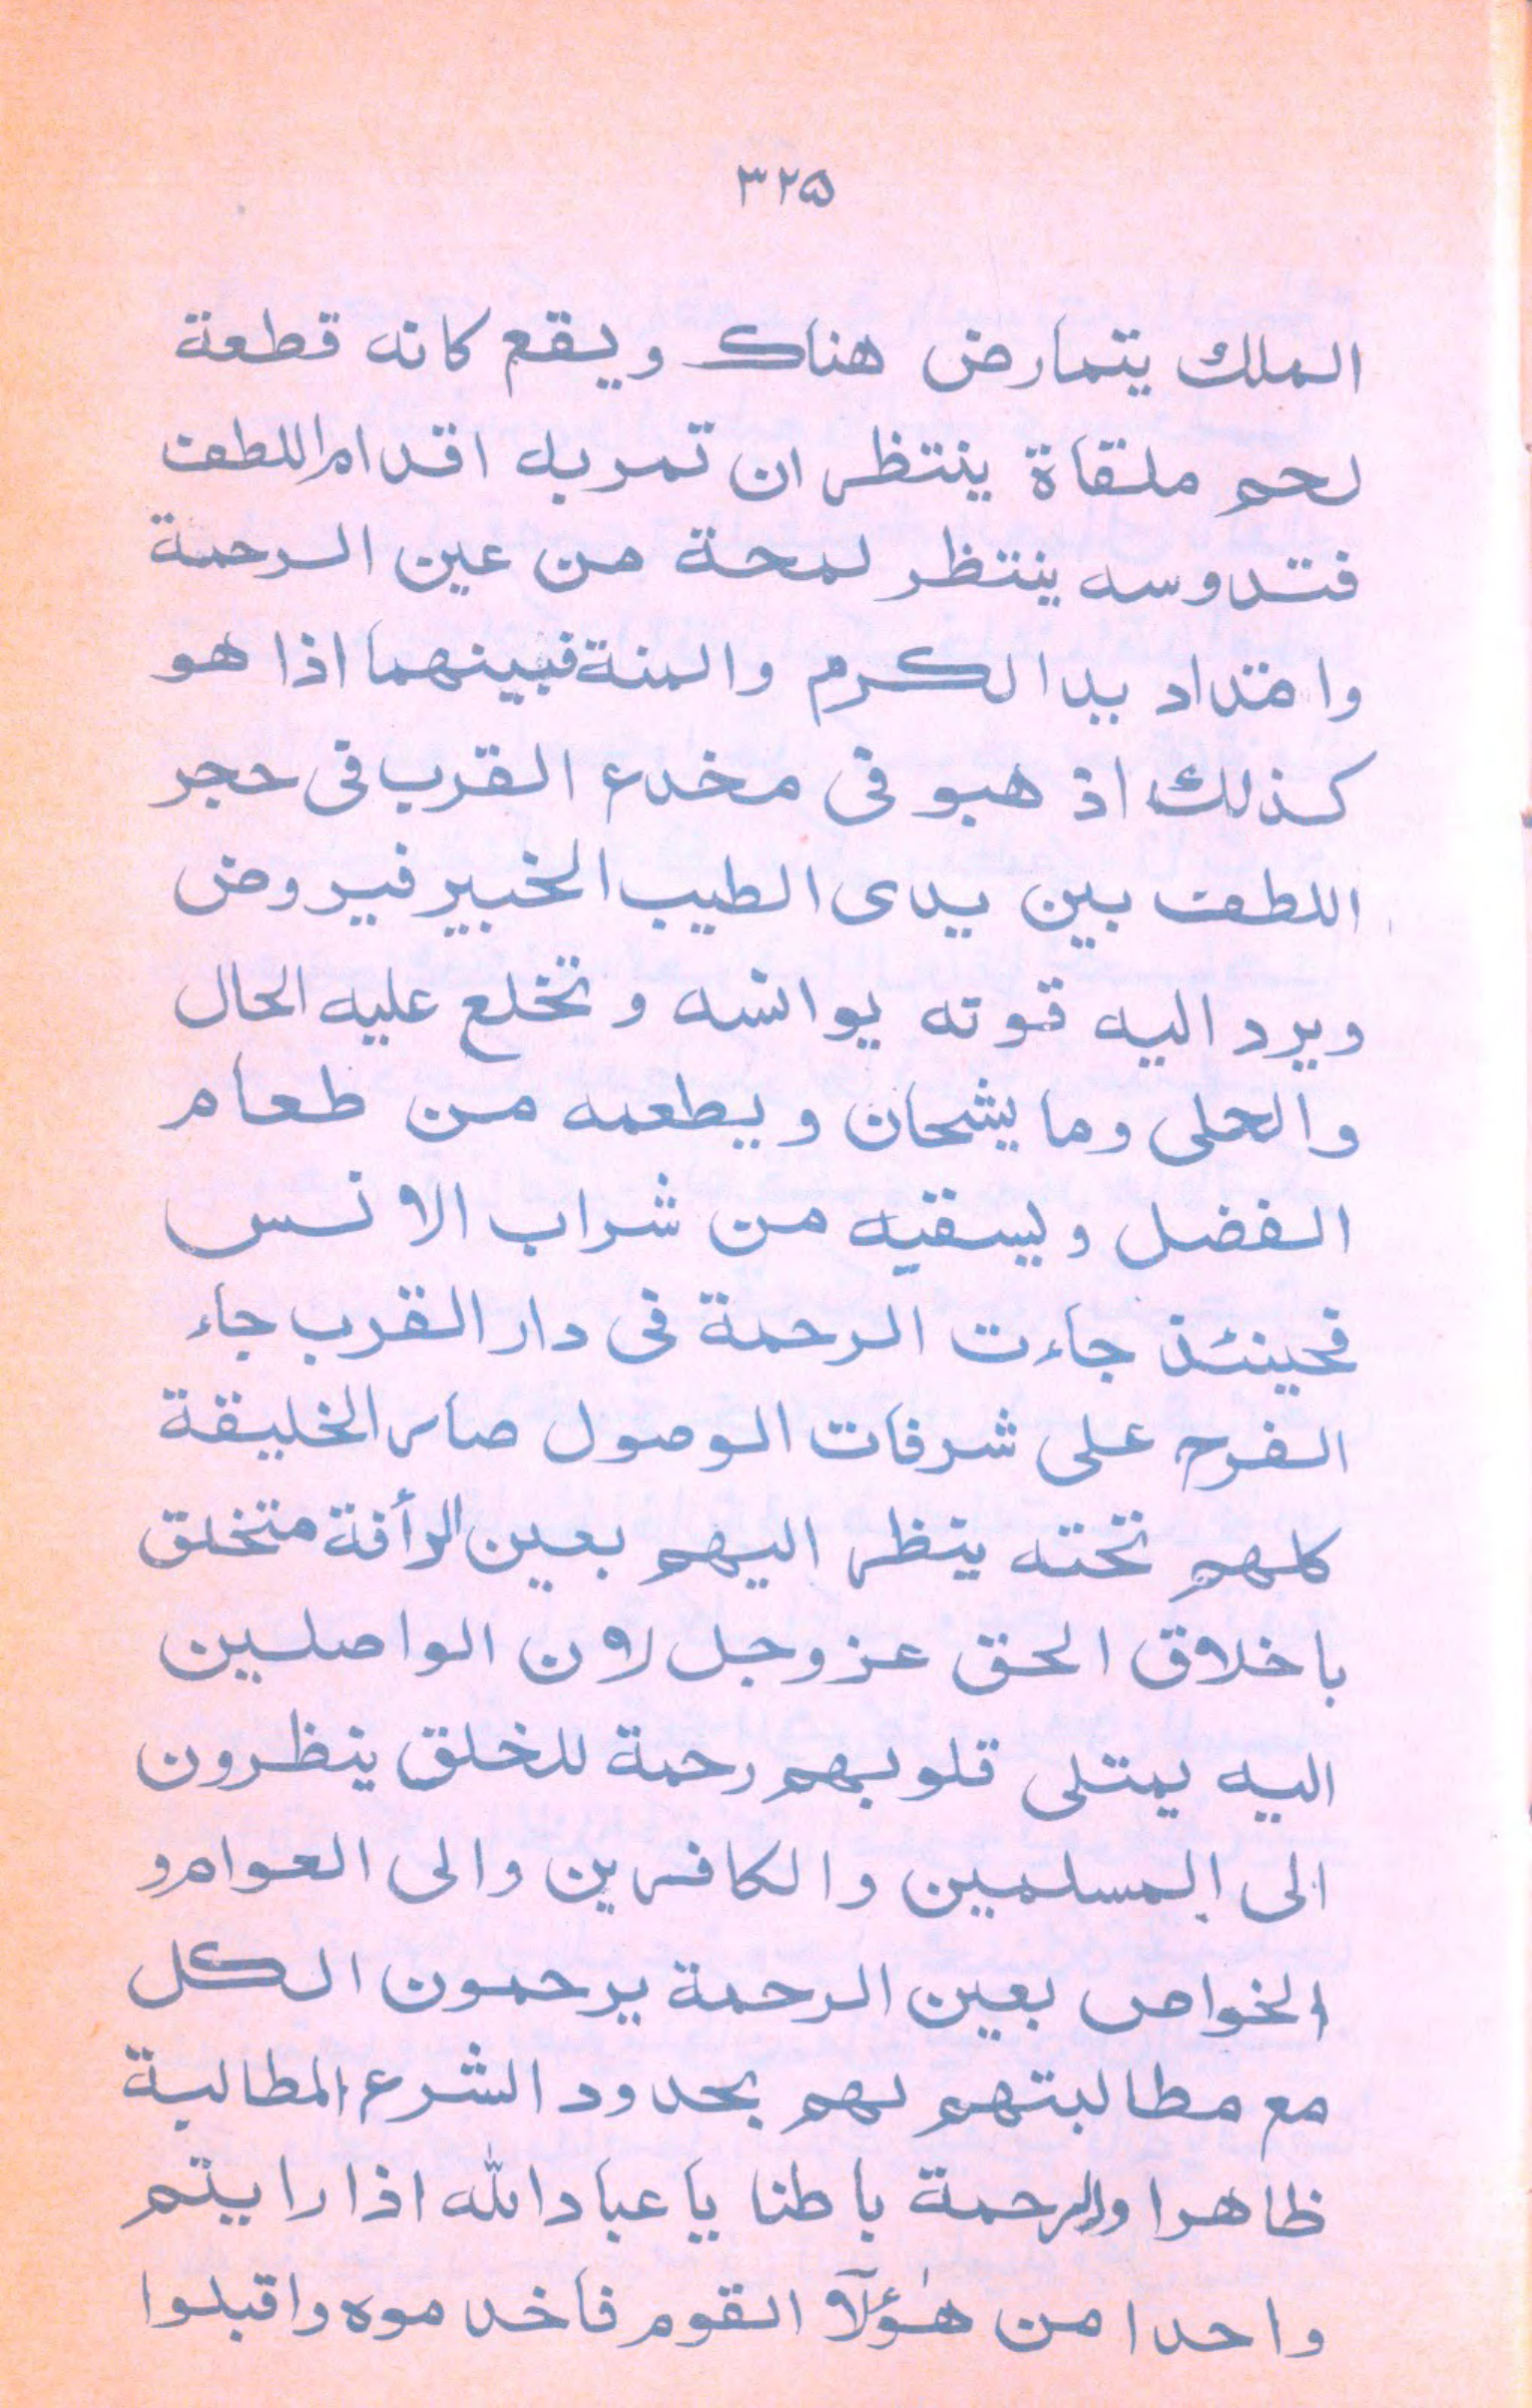 ۳۲۵
الملك يتمارض هناك ويقع كانه قطعة
لحم ملقاة ينتظر ان تمر به اقدام اللطف
فتدوسه ينتظر لمحة من عين الرحمة
وامتداد يد الكرم والمنة فبينهما اذا هو
كذلك اذ هو فى مخدع القرب فى حجر
اللطف بين يدى الطيب الخبير فيروض
ويرد اليه قوته يوانسه و تخلع عليه الحال
والحلى وما يشحان ويطعمه من طعام
الفضل ويسقيه من شراب الانس
فحينئذ جاءت الرحمة فى دار القرب جاء
الفرح على شرفات الوصول صار الخليقة
كلهم تحته ينظر اليهم بعين الرأفة متخلق
باخلاق الحق عز وجل لان الواصلين
اليه يمتلى قلوبهم رحمة للخلق ينظرون
الى المسلمين والكافرين والى العوام و
الخواص بعين الرحمة يرحمون الكل
مع مطالبتهم لهم بحدود الشرع المطالبة
ظاهرا والرحمة باطنا يا عباد الله اذا رايتم
واحدا من هٰؤلآ القوم فاخدموه واقبلوا